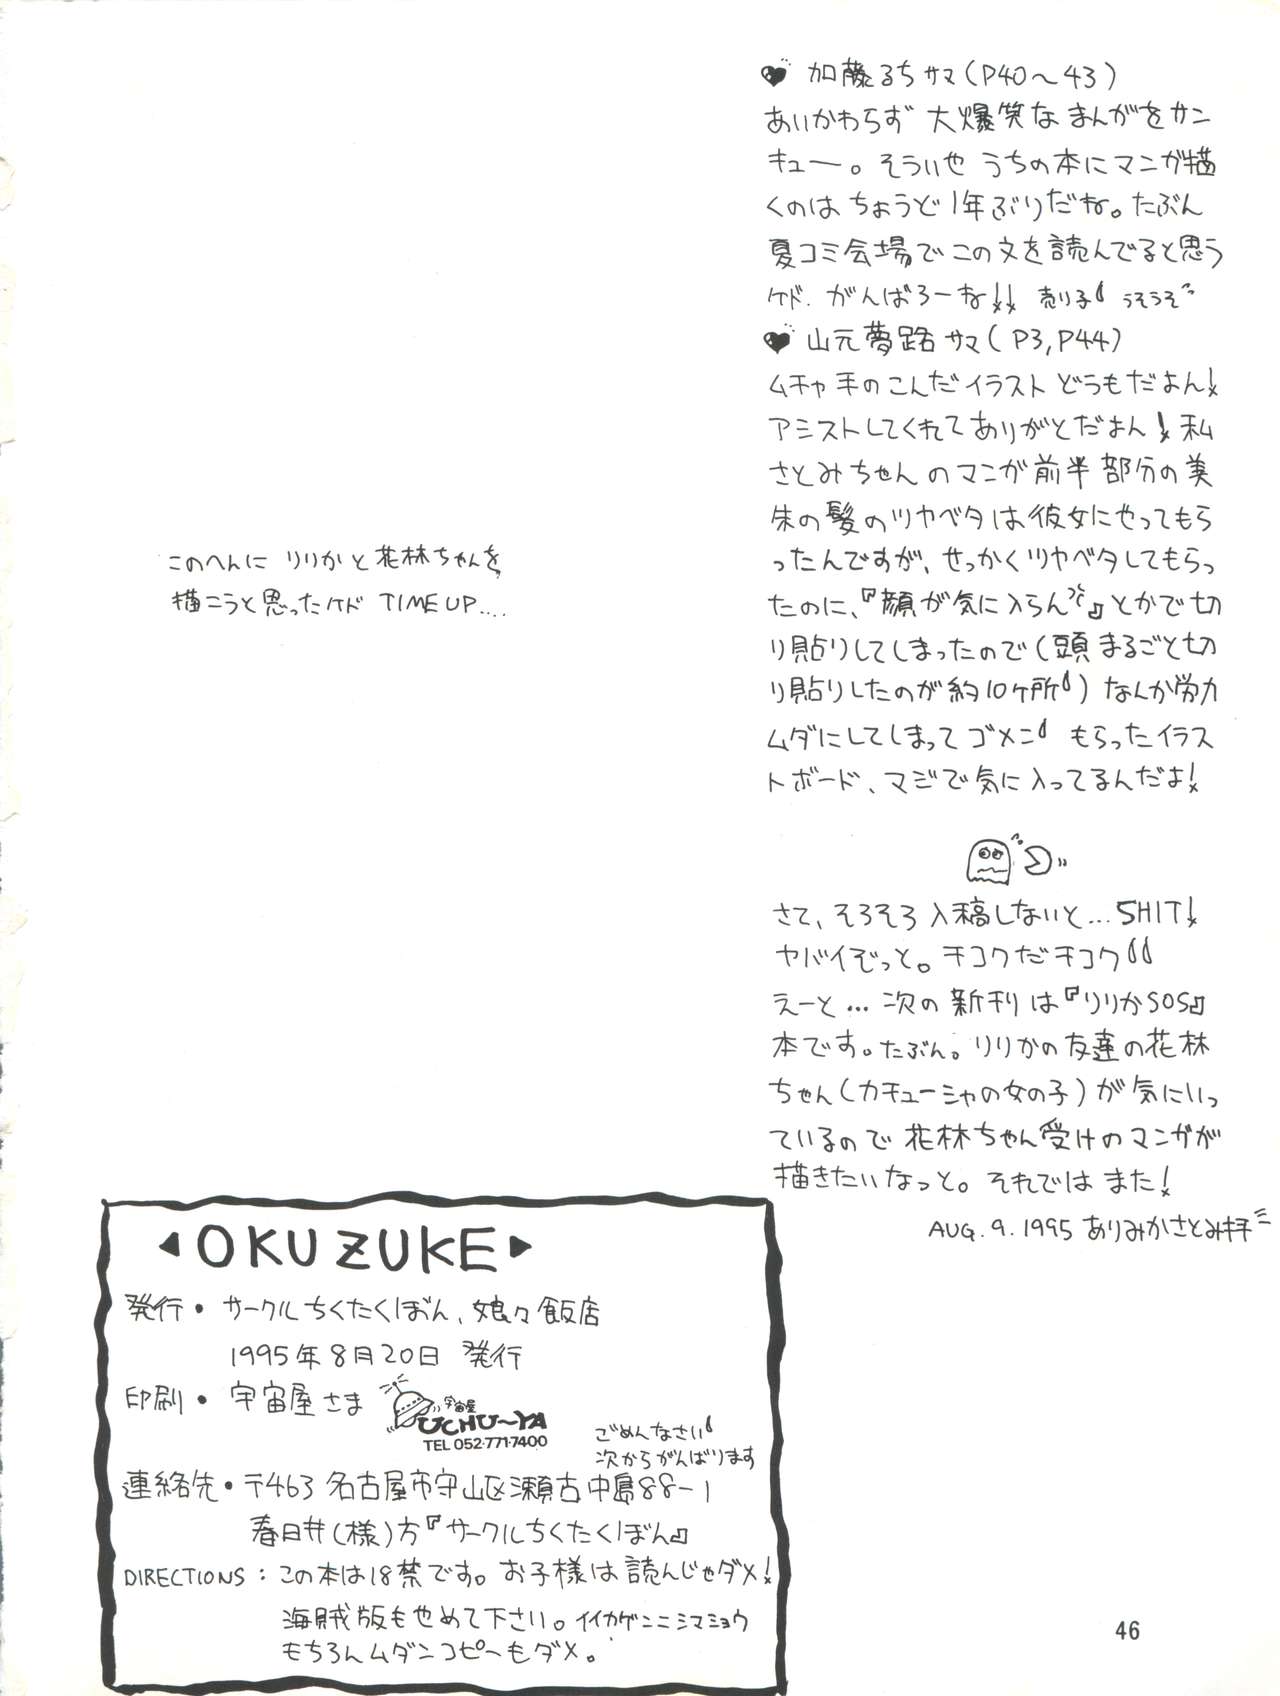 ♥ 加藤るちサマ(P40～43)
あいかわらず 大爆笑なまんがをサン
キュー。そういや うちの本にマンガ描
くのは ちょうど1年ぶりだね。たぶん
夏コミ会場でこの文を読んでると思う
ケド. がんばろーね!! 売り子 うそうそ
♥ 山元夢路サマ(P3,P44)
ムチャ手のこんだイラスト どうもだよん!
アシストしてくれてありがとだよん! 私
さとみちゃんのマンガ前半部分の美
朱の髪のツヤベタは彼女にやってもら
ったんですが、せっかくツヤベタしてもらっ
たのに、『顔が気に入らん』とかで切
り貼りしてしまったので(頭まるごと切
り貼りしたのが約10ケ所)なんか労力
ムダにしてしまってゴメンニ もらったイラス
トボード、マジで気に入ってるんだよ!
このへんに りりかと花林ちゃんを
描こうと思ったケド TIME UP....
さて、そろそろ入稿しないと...SHIT!
ヤバイぞっと。チコクだチコク
えーと...次の新刊は『りりかSOS』
本です。たぶん。りりかの友達の花林
ちゃん(カチューシャの女の子)が気にいっ
ているので花林ちゃん受けのマンガが
描きたいなっと。それではまた!
AUG.9.1995 ありみかさとみ拝
OKUZUKE
発行・サークルちくたくぼん、娘々飯店
1995年8月20日 発行
印刷・宇宙屋さま
宇宙屋
UCHU～YA
TEL 052･771･7400
ごめんなさい
次からがんばります
連絡先・〒463 名古屋市守山区瀬古中島88-1
春日井(様)方『サークルちくたくぼん』
DIRECTIONS : この本は18禁です。お子様は読んじゃダメ!
海賊版もやめて下さい。イイカゲンニシマショウ
もちろんムダンコピーもダメ。
46